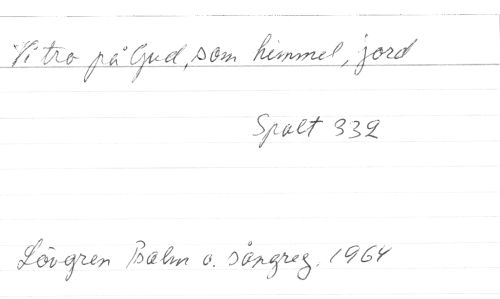 Vi tro på Gud, som himmel, jord
Spalt 332
Lövgren Psalm o. sångreg. 1964